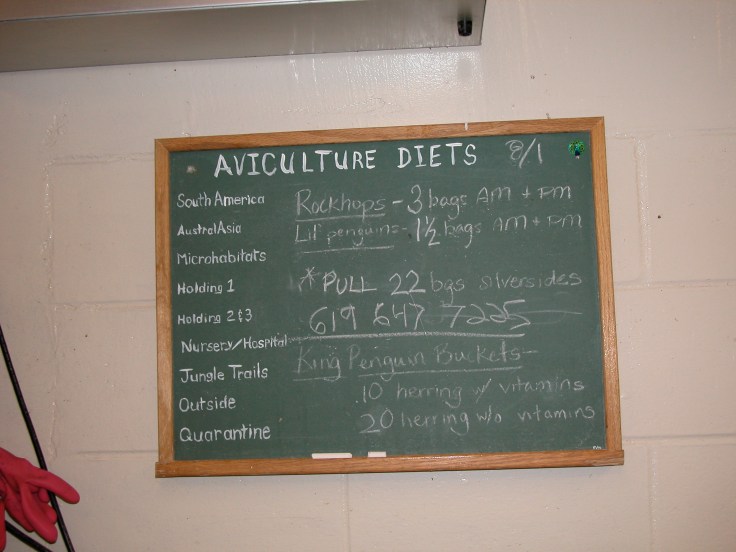 AVICULTURE DIETS 8/1
South America
AustralAsia
Microhabitats
Holding 1
Holding 2&3
Nursery/Hospital
Jungle Trails
Outside
Quarantine
Rockhops - 3 bags AM + PM
Lil' penguins - 1½ bags AM + PM
* PULL 22 bgs silversides
619 647 7225
King Penguin Buckets-
10 herring w/ vitamins
20 herring w/o vitamins